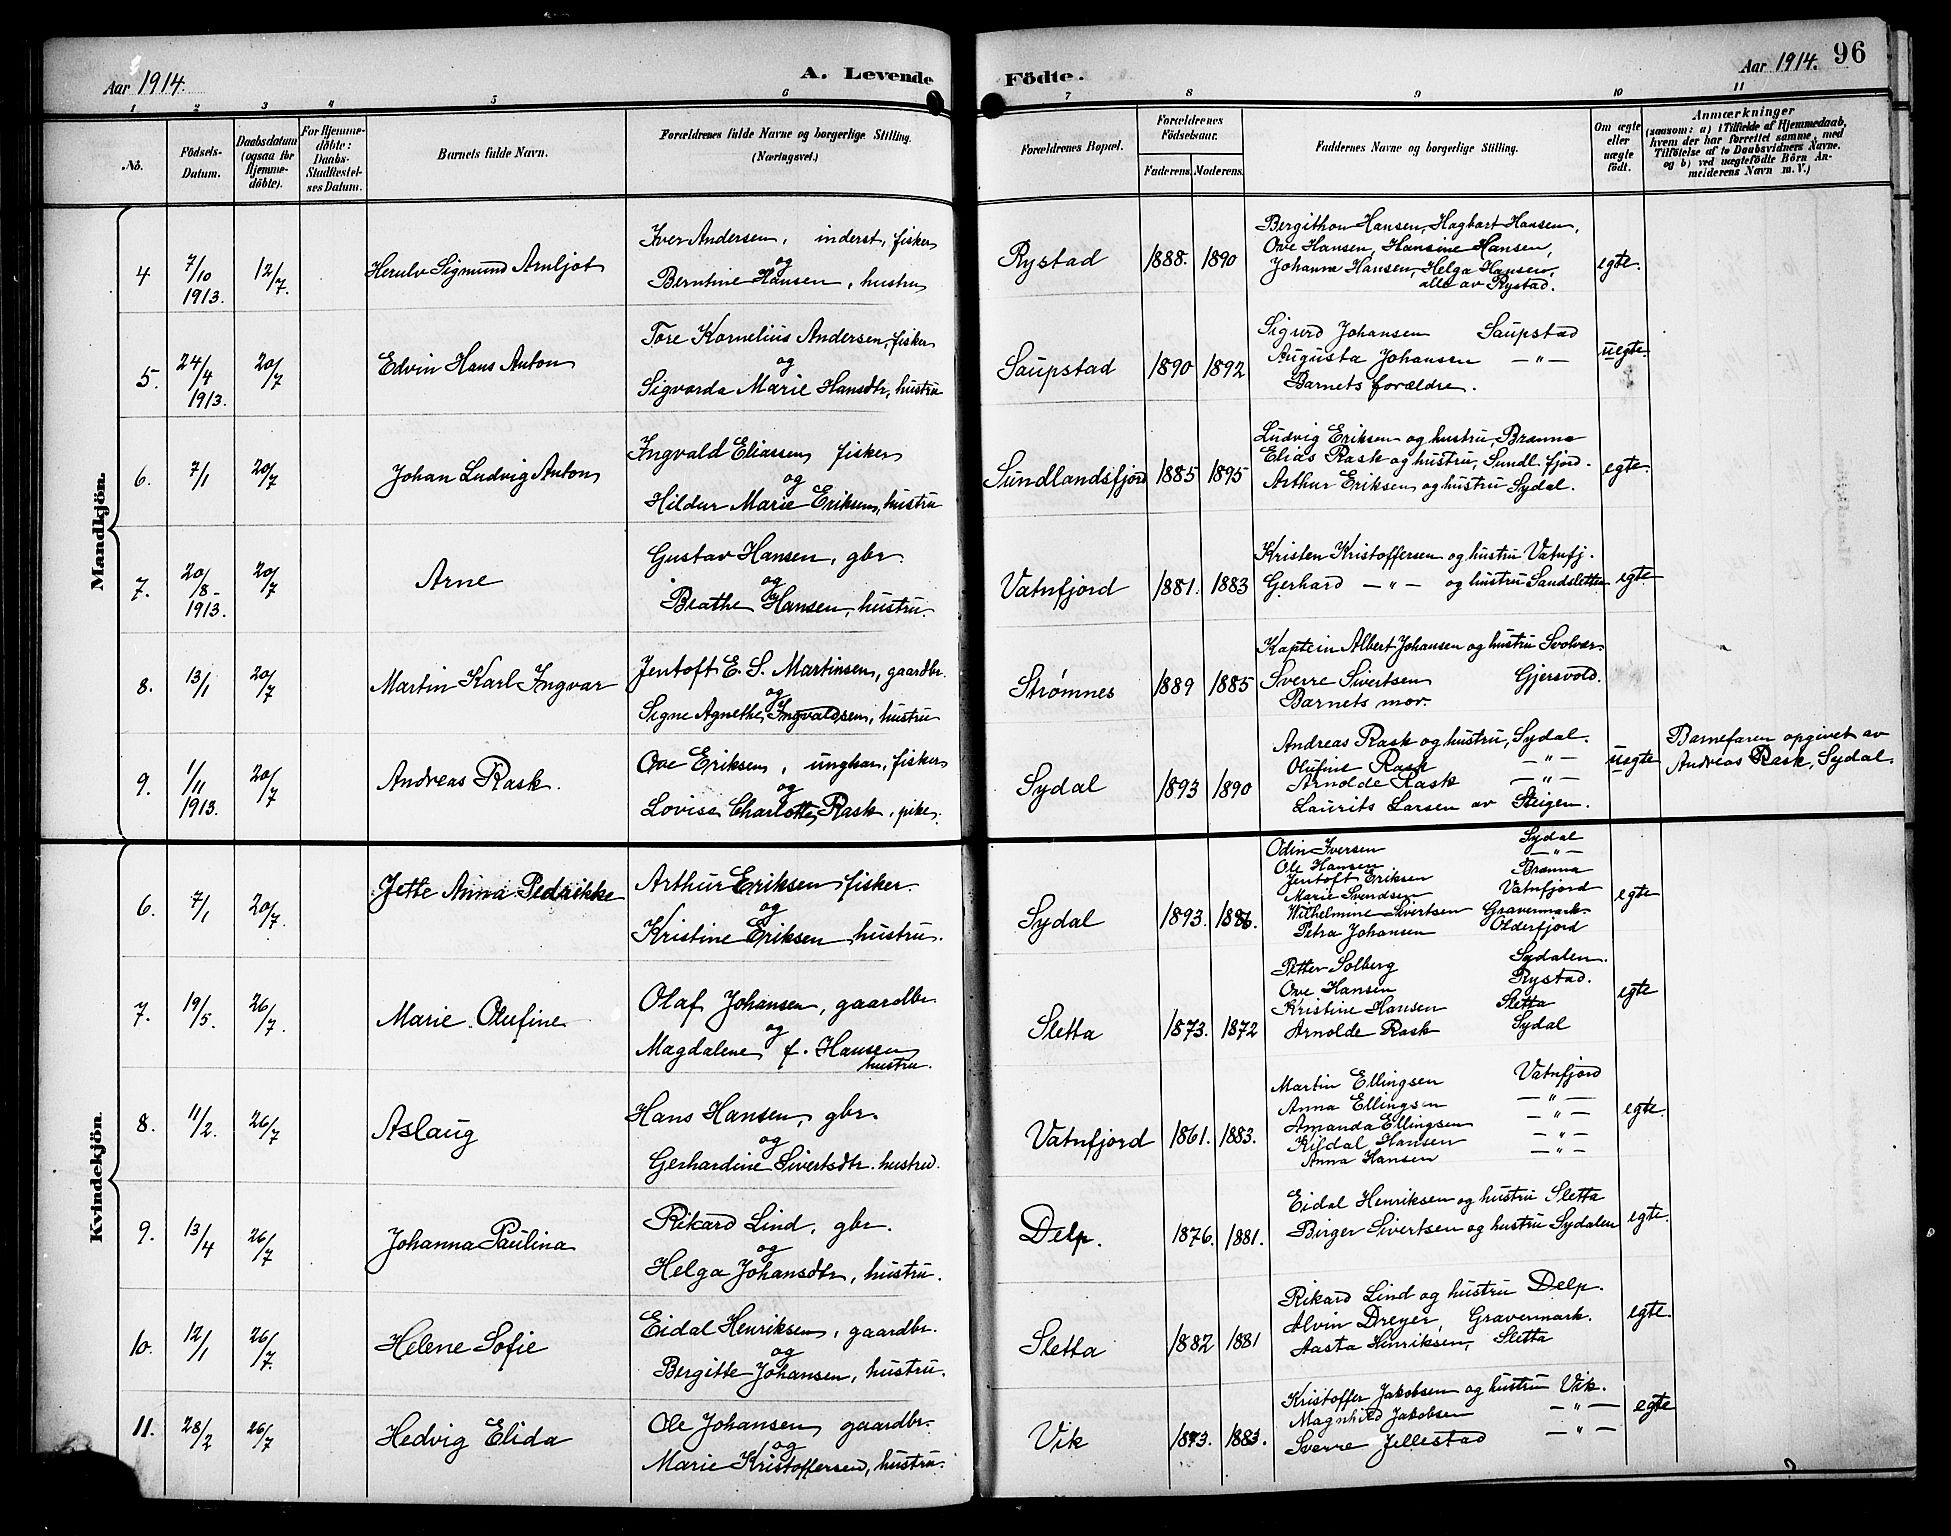 Aar 1914.
A. Levende
Födte.
Aar 1914. 96
1 2 3 4 5 6 7 8 9 10 11
No.
Födsels-
Datum.
Daabsdatum
(ogsaa for
Hjemme-
døbte).
For Hjemme-
döbte:
Daabs-
Stadfæstel-
ses Datum.
Barnets fulde Navn.
Forældrenes fulde Navne og borgerlige Stilling.
(Næringsvei.)
Forældrenes Bopæl.
Forældrenes
Födselsaar.
Faderens. Moderens.
Faddernes Navne og borgerlige Stilling.
Om ægte
eller
uægte
födt.
Anmærkninger
(saasom: a) i Tilfælde af Hjemmedaab,
hvem der har forrettet samme, med
Tilföielse af to Daabsvidners Navne.
og b) ved uægtefödte Börn An-
melderens Navn m. V.)
Mandkjön.
4 7/10 1913. 12/7. Herulv Sigmund Arnljot
Iver Andersen, inderst, fisker
og
Berntine Hansen, hustru
Rystad 1888. 1890
Bergithon Hansen, Hagbart Hansen,
Ove Hansen, Hansine Hansen,
Johanna Hansen, Helga Hansen,
alle av Rystad.
egte.
5. 24/4 1913. 20/7 Edvin Hans Anton
Tore Kornelius Andersen, fisker
og
Sigvarda Marie Hansdtr, hustru
Saupstad 1890 1892
Sigurd Johansen Saupstad
Augusta Johansen — " —
Barnets forældre.
uegte
6. 7/1 20/7 Johan Ludvig Anton
Ingvald Eliassen fisker
og
Hildur Marie Eriksen, hustru
Sundlandsfjord 1885 1895
Ludvig Eriksen og hustru, Brænna
Elias Rask og hustru, Sundl. fjord.
Arthur Eriksen og hustru Sydal.
egte.
7. 20/8 - 1913. 20/7 Arne
Gustav Hansen, gbr.
og
Beathe Hansen, hustru.
Vatnfjord 1881. 1883
Kristen Kristoffersen og hustru Vatnfj.
Gerhard — " — og hustru Sandsletta
egte
8. 13/1 20/7 Martin Karl Ingvar
Jentoft E. S. Martinsen, gaardbr.
og
Signe Agnethe Ingvaldsen, hustru
Strømnes 1889 1885
Kaptein Albert Johansen og hustru Svolvær
Sverre Sivertsen Gjersvold.
Barnets mor.
9. 1/11 1913. 20/7 Andreas Rask.
Ove Eriksen, ungkar, fisker
og
Lovise Charlotte Rask, pike.
Sydal 1893 1890
Andreas Rask og hustru, Sydal.
Olufine Rask — " —
Arnolde Rask — " —
Laurits Larsen av Steigen.
uegte
Barnefaren opgivet av
Andreas Rask, Sydal.
Kvindekjön.
6. 7/1 20/7. Jette Anna Pedrikke
Arthur Eriksen fisker.
og
Kristine Eriksen hustru.
Sydal 1893. 1886.
Odin Iversen Sydal
Ole Hansen — " —
Jentoft Eriksen Brænna
Marie Svendsen Vatnfjord
Wilhelmine Sivertsen Gravermark.
Petra Johansen Olderfjord
egte
7. 19/5. 26/7. Marie Olufine
Olaf Johansen, gaardbr.
og
Magdalene f. Hansen
hustru.
Sletta 1873. 1872
Petter Solberg Sydalen.
Ove Hansen Rystad.
Kristine Hansen Sletta
Arnolde Rask Sydal
egte
8. 11/2. 26/7 Aslaug
Hans Hansen, gbr.
og
Gerhardine Sivertsdtr. hustru.
Vatnfjord 1861. 1883.
Martin Ellingsen Vatnfjord
Anna Ellingsen — " —
Amanda Ellingsen — " —
Kildal Hansen — " —
Anna Hansen — " —
egte.
9. 13/4 26/7 Johanna Paulina
Rikard Lind, gbr.
og
Helga Johansdtr, hustru.
Delp. 1876. 1881.
Eidal Henriksen og hustru Sletta
Birger Sivertsen og hustru Sydalen
egte.
10. 12/1 26/7. Helene Sofie
Eidal Henriksen, gaardbr.
og
Bergitte Johansen, hustru.
Sletta 1882 1881
Rikard Lind og hustru Delp.
Alvin Dreyer, Gravermark.
Aasta Henriksen, Sletta
egte.
11. 28/2 26/7 Hedvig Elida
Ole Johansen gaardbr.
og
Marie Kristoffersen, hustru.
Vik 1873. 1883.
Kristoffer Jakobsen og hustru Vik.
Magnhild Jakobsen — " —
Sverre Jellestad — " —
egte